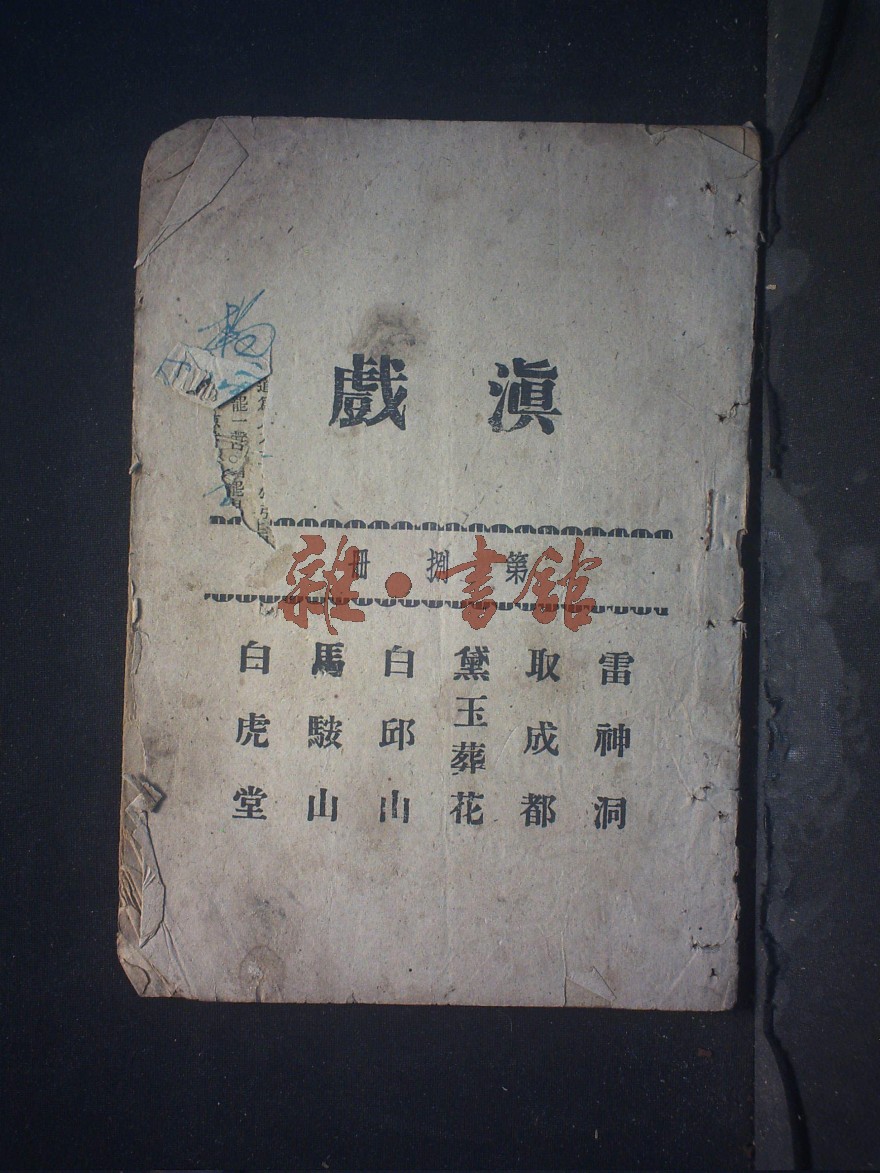 滇戲
第捌冊
雷神洞
取成都
黛玉葬花
白邱山
馬鞍山
白虎堂
雜·書館